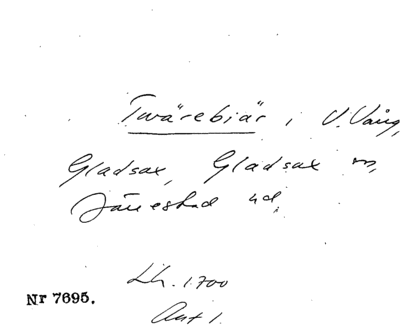 Twärebiär i V. Vång,
Gladsax, Gladsax sn,
Järrestad hd.
Lh. 1700
Akt 1.
Nr 7695.